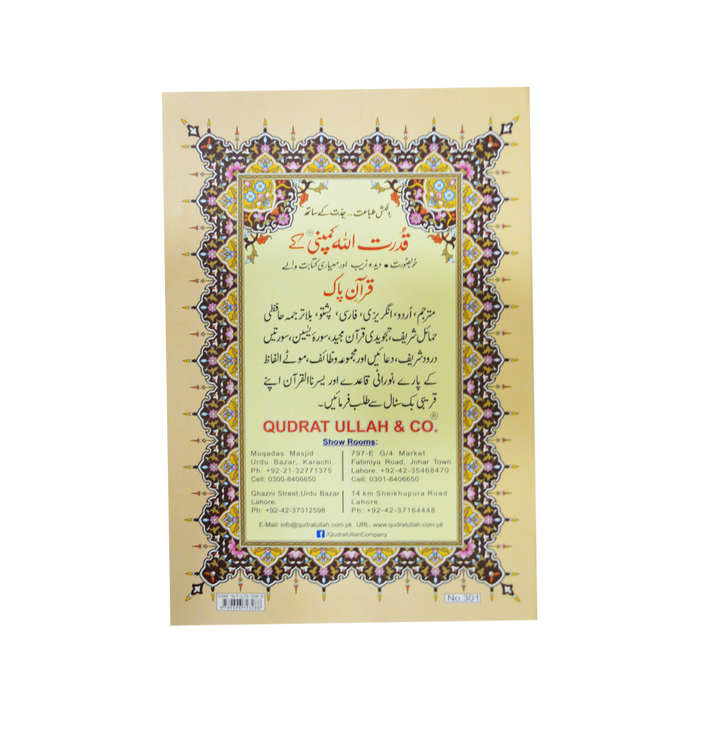 دلکش طباعت۔ جدّت کے ساتھ
قُدرت اللہ کمپنی ® کے
خوبصورت • دیدہ زیب اور معیاری کتابت والے
قرآن پاک
مترجم، اُردو، انگریزی، فارسی، پشتو، بلاترجمہ حافظی
حمائل شریف، تجویدی قرآن مجید، سورۂ یٰسین، سورتیں
درود شریف، دعائیں اور مجموعہ وظائف، موٹے الفاظ
کے پارے، نورانی قاعدے اور یسرنا القرآن اپنے
قریبی بک سٹال سے طلب فرمائیں۔
QUDRAT ULLAH & CO.®
Show Rooms:
Muqadas Masjid
Urdu Bazar, Karachi.
Ph: +92-21-32771375
Cell: 0300-8406650
797-E G/4 Market
Fatimiya Road, Johar Town
Lahore. +92-42-35468470
Cell: 0301-8406650
Ghazni Street,Urdu Bazar
Lahore.
Ph: +92-42-37312598
14 km Sheikhupura Road
Lahore.
Ph: +92-42-37164448
E-Mail: info@qudratullah.com.pk URL: www.qudratullah.com.pk
f /QudratUllahCompany
No.301